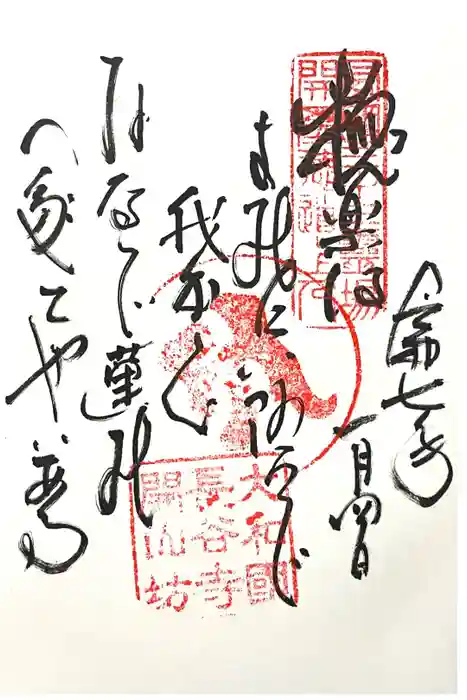 令七年
一月四日
極楽は
よそにはあらじ
我が心
おなじ蓮の
へだてやはある
開基徳道上人
大和國
長谷寺
開山坊